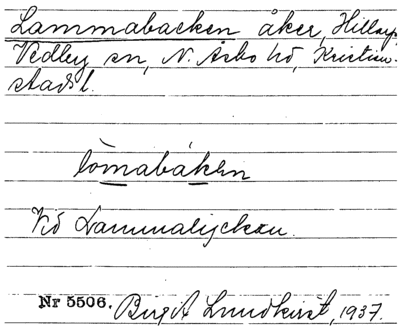 Lammabacken åker, Hillarp,
Vedby sn, N. Åsbo hd, Kristian-
stads l.
lòmabáken
Vid Lammalyckan.
Nr 5506. Birgit Lundkvist, 1937.